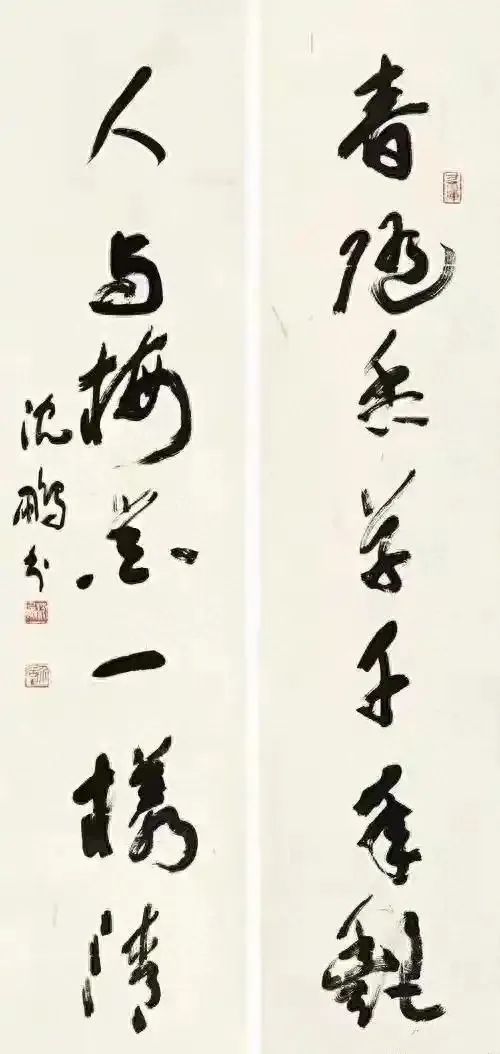 春随香草千年艷
人与梅花一樣清
沈鹏书